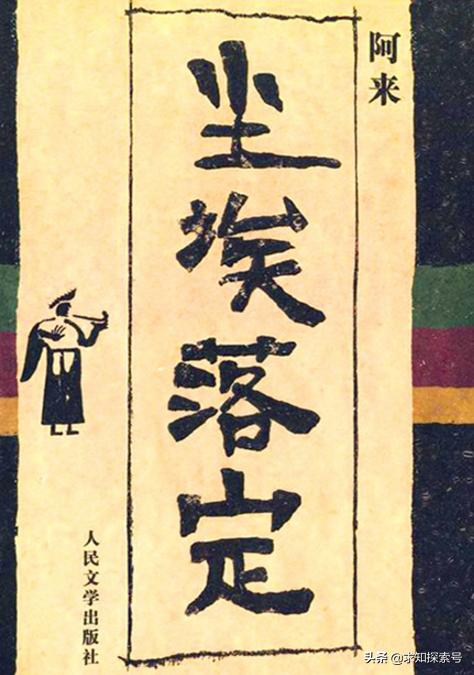 阿来
尘埃落定
人民文学出版社
头条 @求知探索号